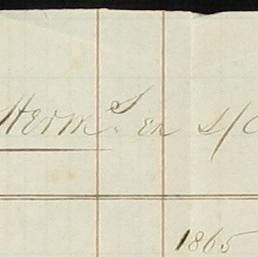 Herm.ˢ en s/C
1865